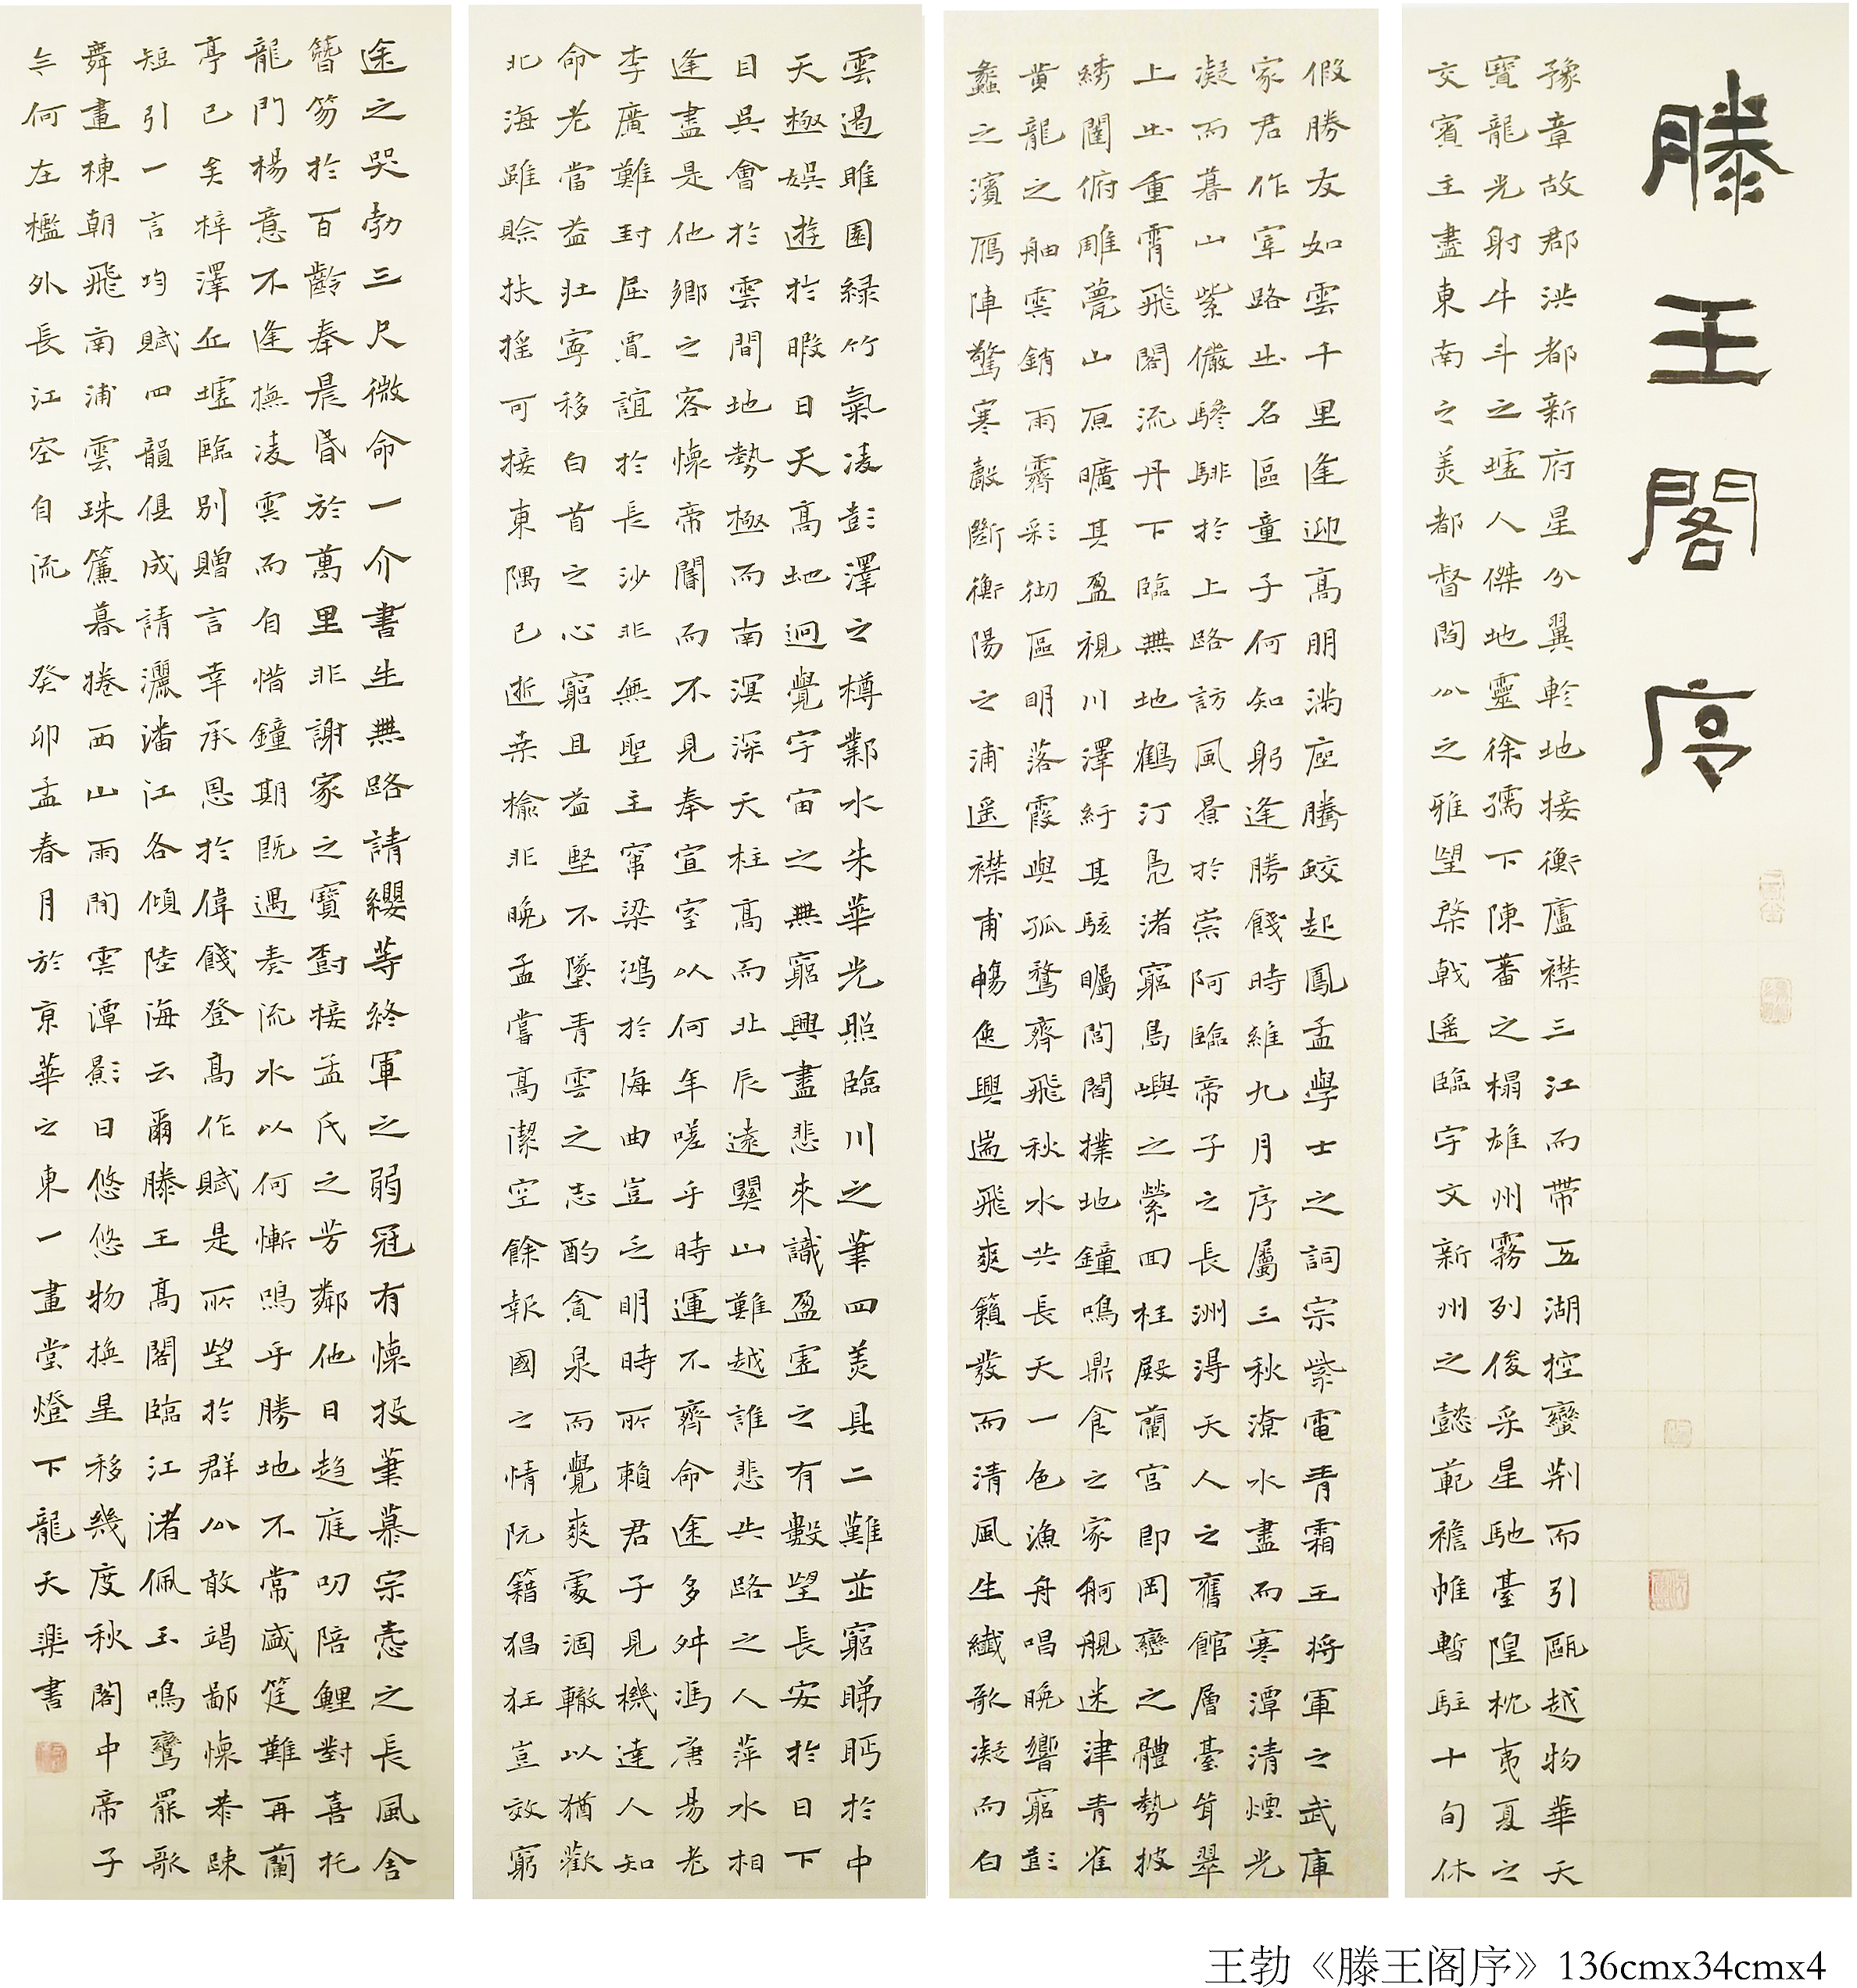 滕王閣序
豫章故郡洪都新府星分翼軫地接衡廬襟三江而帶五湖控蠻荊而引甌越物華天
寶龍光射牛斗之墟人傑地靈徐孺下陳蕃之榻雄州霧列俊采星馳臺隍枕夷夏之
交賓主盡東南之美都督閻公之雅望棨戟遙臨宇文新州之懿範襜帷暫駐十旬休
假勝友如雲千里逢迎高朋滿座騰蛟起鳳孟學士之詞宗紫電青霜王將軍之武庫
家君作宰路出名區童子何知躬逢勝餞時維九月序屬三秋潦水盡而寒潭清煙光
凝而暮山紫儼驂騑於上路訪風景於崇阿臨帝子之長洲得天人之舊館層臺聳翠
上出重霄飛閣流丹下臨無地鶴汀鳧渚窮島嶼之縈回桂殿蘭宮即岡巒之體勢披
綉闥俯雕甍山原曠其盈視川澤紆其駭矚閭閻撲地鐘鳴鼎食之家舸艦迷津青雀
黄龍之舳雲銷雨霽彩徹區明落霞與孤鶩齊飛秋水共長天一色漁舟唱晚響窮彭
蠡之濱雁陣驚寒聲斷衡陽之浦遙襟甫暢逸興遄飛爽籟發而清風生纖歌凝而白
雲遏睢園綠竹氣凌彭澤之樽鄴水朱華光照臨川之筆四美具二難並窮睇眄於中
天極娛遊於暇日天高地迥覺宇宙之無窮興盡悲來識盈虛之有數望長安於日下
目吳會於雲間地勢極而南溟深天柱高而北辰遠關山難越誰悲失路之人萍水相
逢盡是他鄉之客懷帝閽而不見奉宣室以何年嗟乎時運不齊命途多舛馮唐易老
李廣難封屈賈誼於長沙非無聖主竄梁鴻於海曲豈乏明時所賴君子見機達人知
命老當益壯寧移白首之心窮且益堅不墜青雲之志酌貪泉而覺爽處涸轍以猶歡
北海雖賒扶搖可接東隅已逝桑榆非晚孟嘗高潔空餘報國之情阮籍猖狂豈效窮
途之哭勃三尺微命一介書生無路請纓等終軍之弱冠有懷投筆慕宗愨之長風舍
簪笏於百齡奉晨昏於萬里非謝家之寶樹接孟氏之芳鄰他日趨庭叨陪鯉對喜托
龍門楊意不逢撫凌雲而自惜鐘期既遇奏流水以何慚鳴乎勝地不常盛筵難再蘭
亭已矣梓澤丘墟臨別贈言幸承恩於偉餞登高作賦是所望於群公敢竭鄙懷恭疎
短引一言均賦四韻俱成請灑潘江各傾陸海云爾滕王高閣臨江渚佩玉鳴鸞罷歌
舞畫棟朝飛南浦雲珠簾暮捲西山雨閒雲潭影日悠悠物換星移幾度秋閣中帝子
今何在檻外長江空自流 癸卯孟春月於京華之東一畫堂燈下龍天樂書
王勃《滕王阁序》136cmx34cmx4